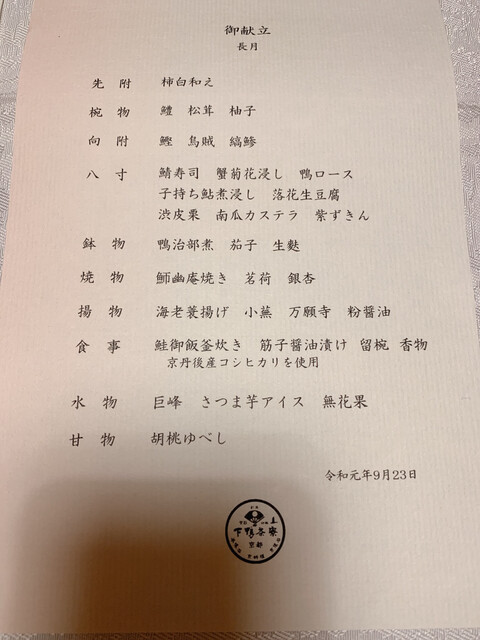 御献立
長月
先附 柿白和え
椀物 鱧 松茸 柚子
向附 鰹 烏賊 縞鯵
八寸 鯖寿司 蟹菊花浸し 鴨ロース
子持ち鮎煮浸し 落花生豆腐
渋皮栗 南瓜カステラ 紫ずきん
鉢物 鴨治部煮 茄子 生麩
焼物 魳幽庵焼き 茗荷 銀杏
揚物 海老蓑揚げ 小蕪 万願寺 粉醤油
食事 鮭御飯釜炊き 筋子醤油漬け 留椀 香物
京丹後産コシヒカリを使用
水物 巨峰 さつま芋アイス 無花果
甘物 胡桃ゆべし
令和元年9月23日
下鴨茶寮
京都